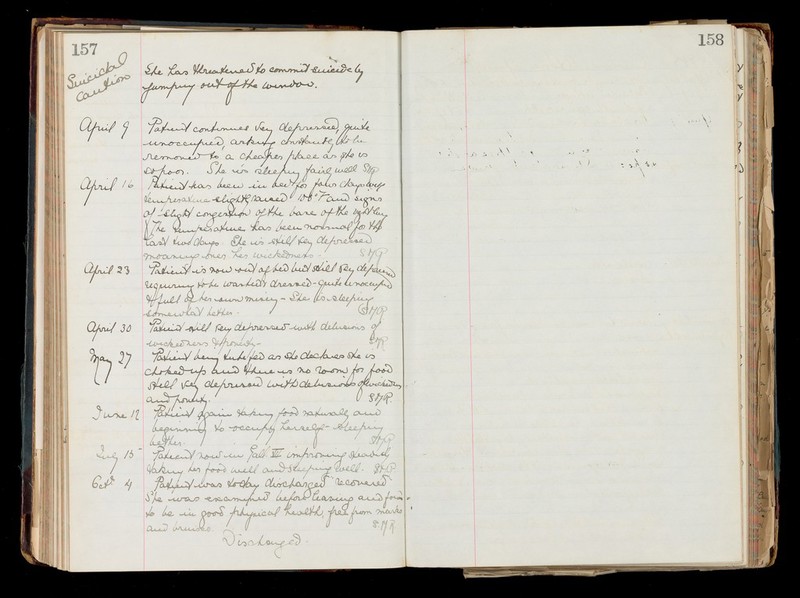 157
158
Suicidal
caution
She has threatened to commit suicide by
jumping out of the window.
April 9 Patient continues very depressed, quite
unoccupied, asking constantly to be
removed to a cheaper place as she is
so poor. She is sleeping fairly well
April 16 Patient has been in bed for four days
temperature slightly raised 100° F and signs
of slight congestion of the base of the right lung
The temperature has been normal for the
last two days. She is still very depressed
moaning over her wickedness.
April 23 Patient is now out of bed but still very depressed
requiring to be washed & dressed - quite unoccupied
& full of her own misery - She is sleeping
somewhat better.
April 30 Patient still very depressed with delusions of
wickedness & poverty.
May 27 Patient being tube fed as she declares she is
choked up and there is no room for food
still very depressed with delusions of wickedness
and poverty.
June 12 Patient again taking food naturally and
beginning to occupy herself - sleeping
better.
July 15 Patient now in Gall III improving steadily
taking her food well and sleeping well.
Oct 4 Patient was today discharged recovered
She was examined before leaving and found
to be in good physical health, free from marks
and bruises.
Discharged.